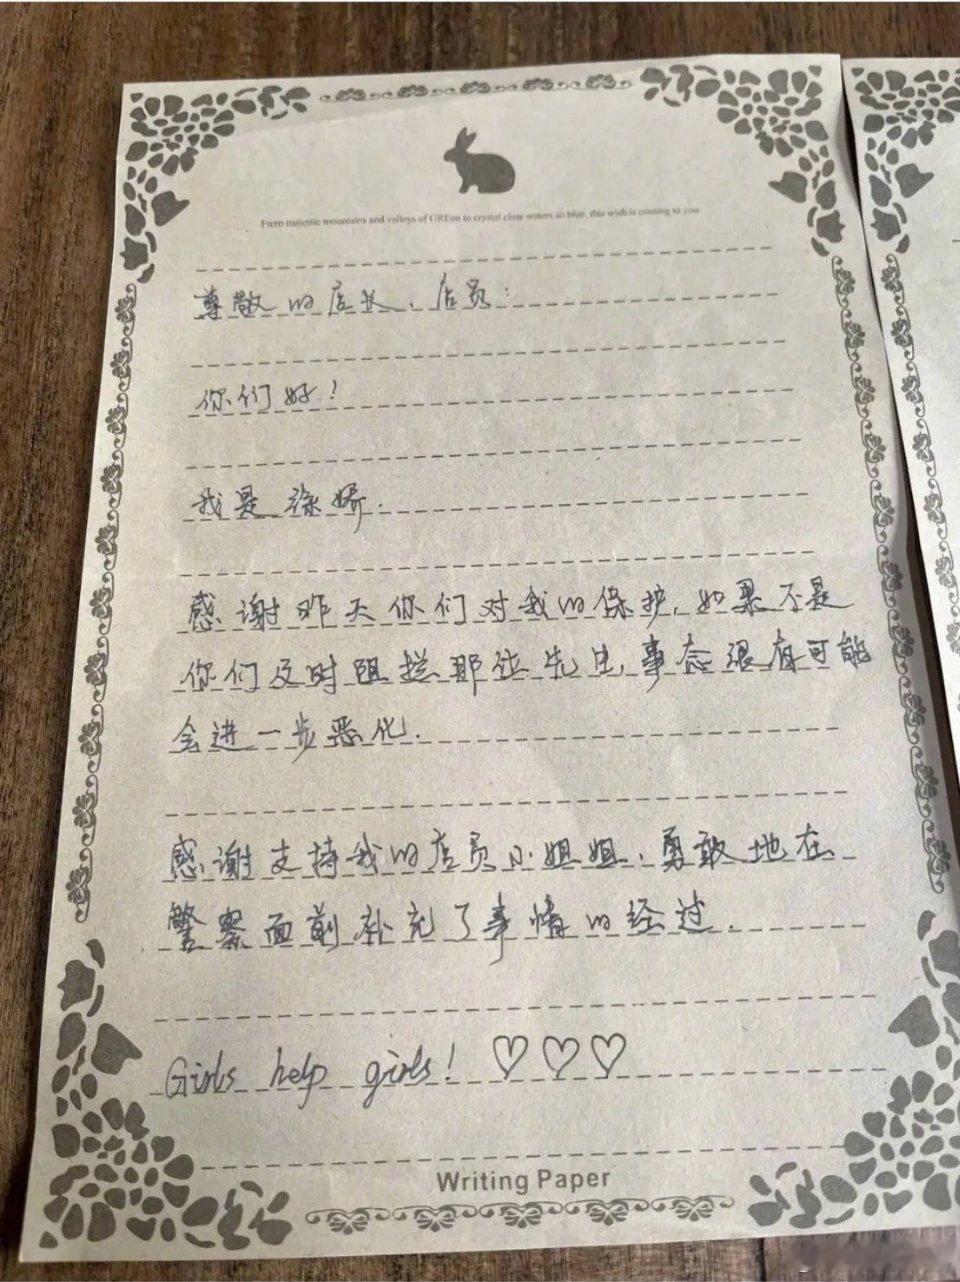 From majestic mountains and valleys of GREen to crystal clear waters so blue, this wish is coming to you
尊敬的店长、店员:
你们好!
我是徐娇.
感谢昨天你们对我的保护,如果不是
你们及时阻拦那位先生,事态很有可能
会进一步恶化.
感谢支持我的店员小姐姐,勇敢地在
警察面前补充了事情的经过.
Girls help girls! ♡♡♡
Writing Paper